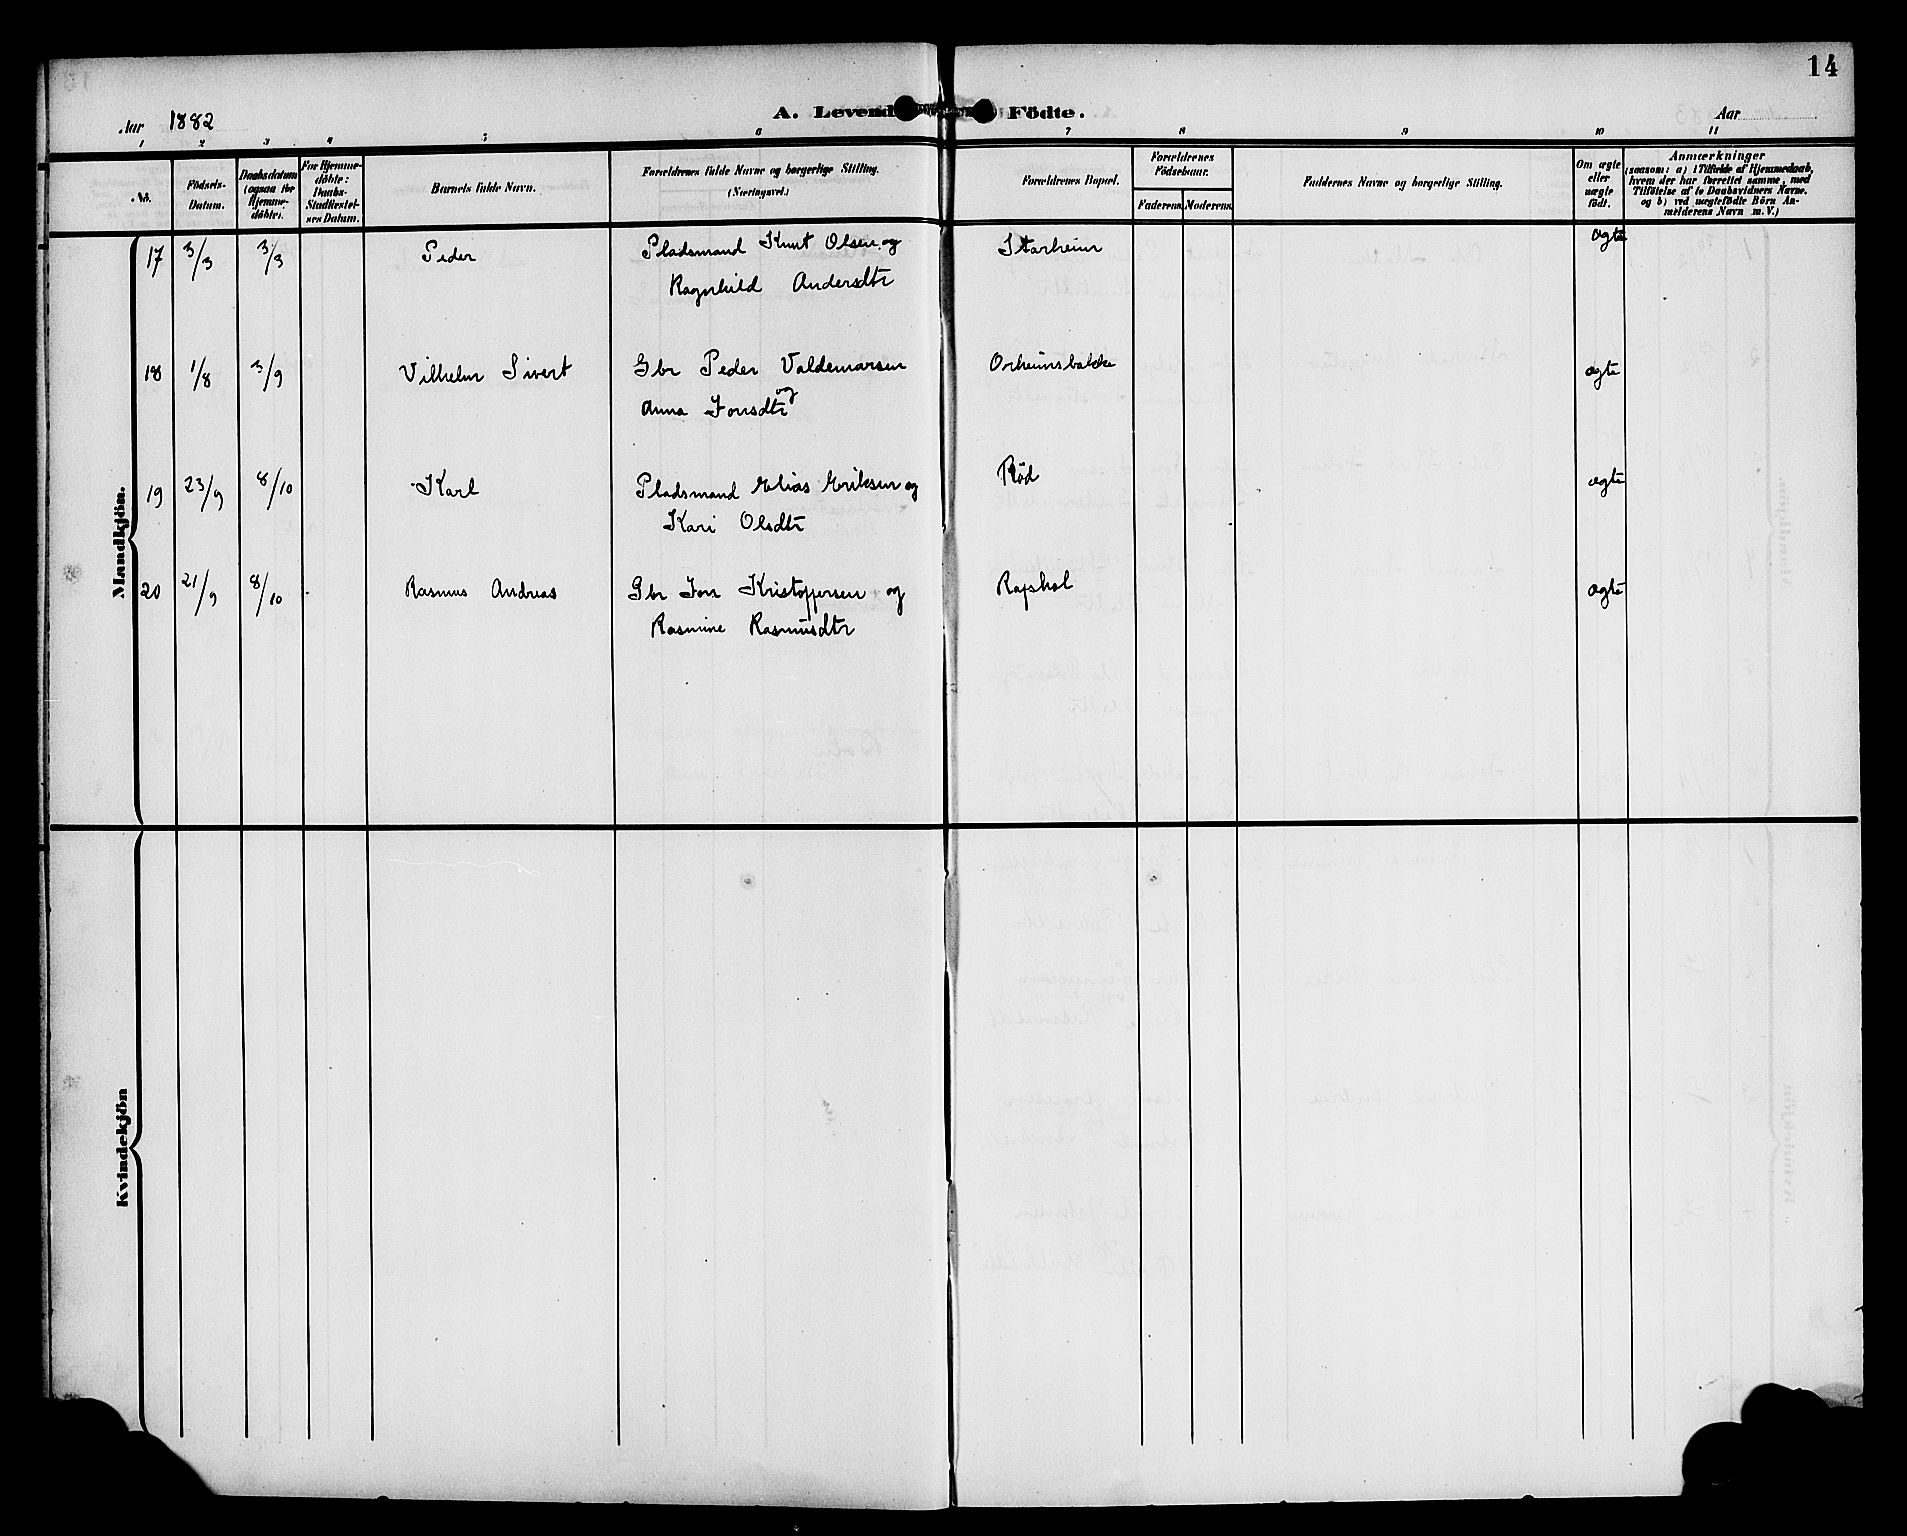 14
Aar 1882 A. Levende Födte. Aar
1 2 3 4 5 6 7 8 9 10 11
No. Födsels-Datum. Daabsdatum (ogsaa for Hjemmedöbte). For Hjemmedöbte: Daabs-Stadfæstelses Datum. Barnets fulde Navn. Forældrenes fulde Navne og borgerlige Stilling. (Næringsvei.) Forældrenes Bopæl. Forældrenes Födselsaar. Faderens Moderens Faddernes Navne og borgerlige Stilling. Om ægte eller uægte födt. Anmærkninger (saasom: a) i Tilfælde af Hjemmedaab, hvem der har forrettet samme, med Tilföielse af to Daabsvidners Navne, og b) ved uægtefödte Börn Anmelderens Navn m. V.)
Mandkjön.
17 3/3 3/3 Peder Pladsmand Knut Olsen og Starheim ægte
Ragnhild Andersdtr
18 1/8 3/9 Vilhelm Sivert Gbr Peder Valdemarsen Orheimsbakke ægte
og
Anna Jonsdtr
19 23/9 8/10 Karl Pladsmand Elias Eriksen og Röd ægte
Kari Olsdtr
20 21/9 8/10 Rasmus Andreas Gbr Jon Kristoffersen og ægte
Rasmine Rasmusdtr
Kvindekjön